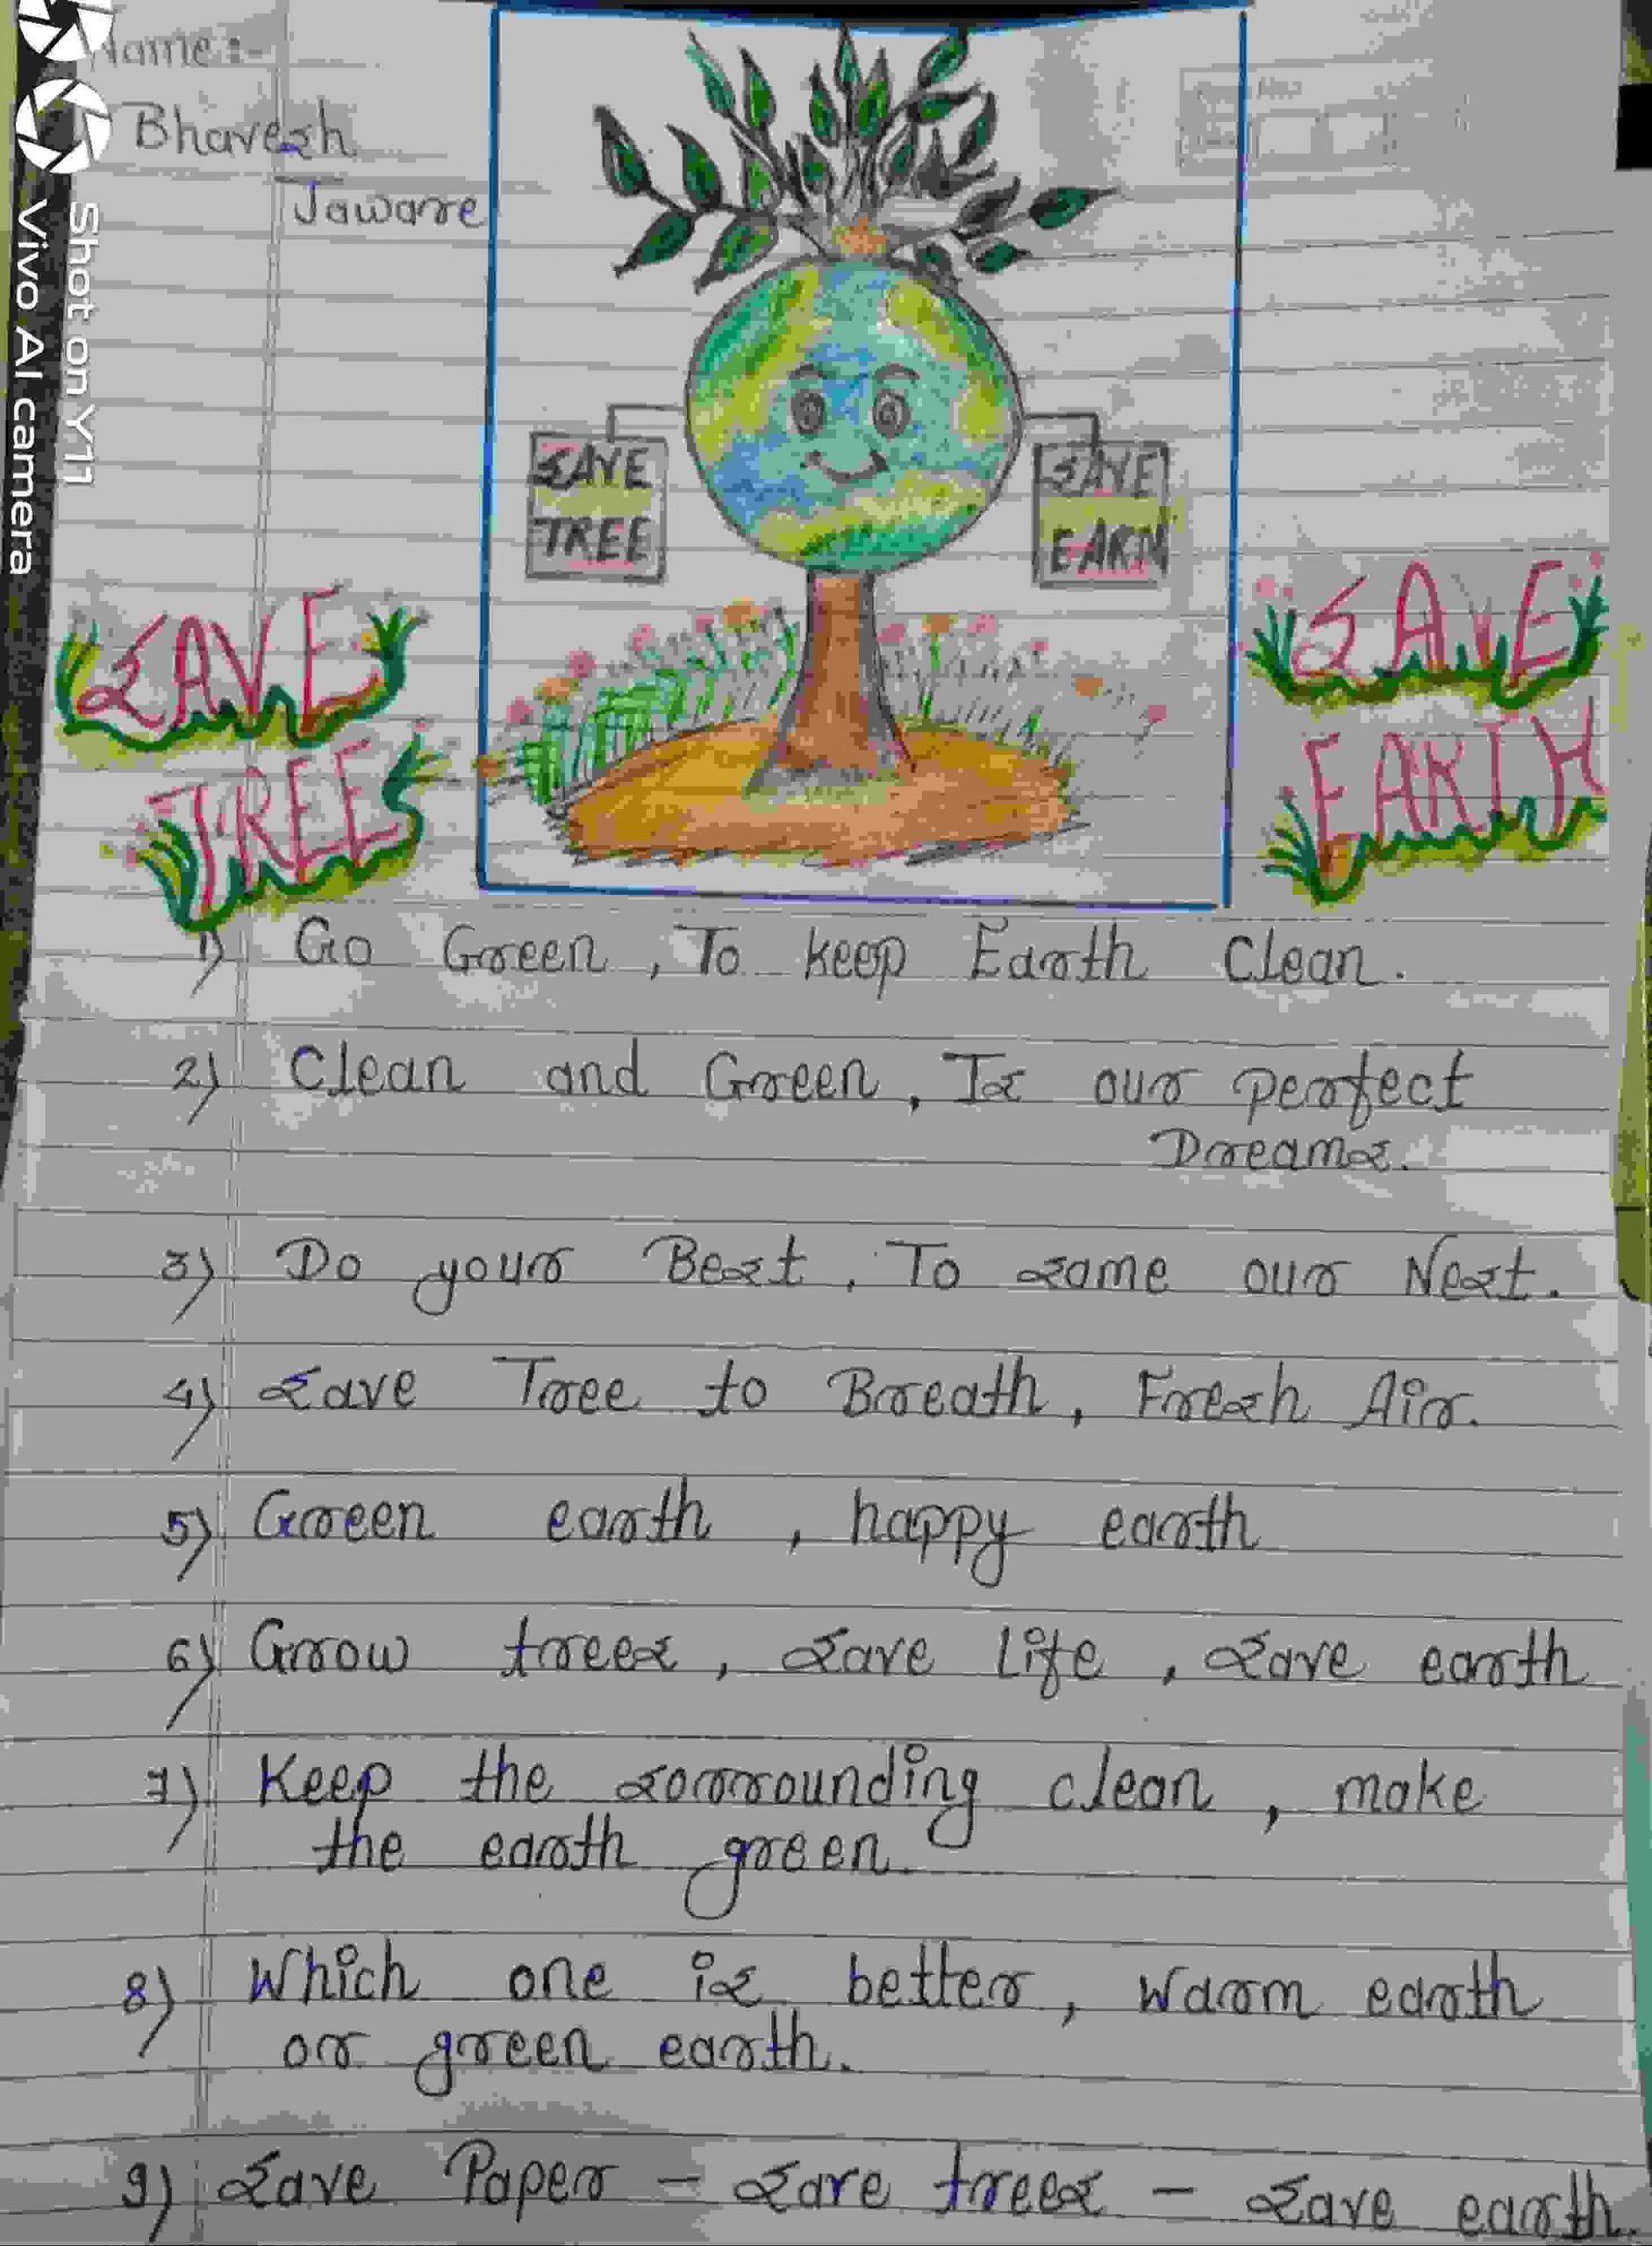 Name :-
Bhavesh
Jaware
Shot on Y11
Vivo AI camera
SAVE
TREE
SAVE
EARN
SAVE
TREE
SAVE
EARTH
1) Go Green, To keep Earth Clean.
2) Clean and Green, Is our perfect
Dreams.
3) Do your Best, To same our Nest.
4) Save Tree to Breath, Fresh Air.
5) Green earth, happy earth
6) Grow trees, save life, save earth
7) Keep the sorrounding clean, make
the earth green.
8) Which one is better, warm earth
or green earth.
9) Save Paper - Save trees - Save earth.